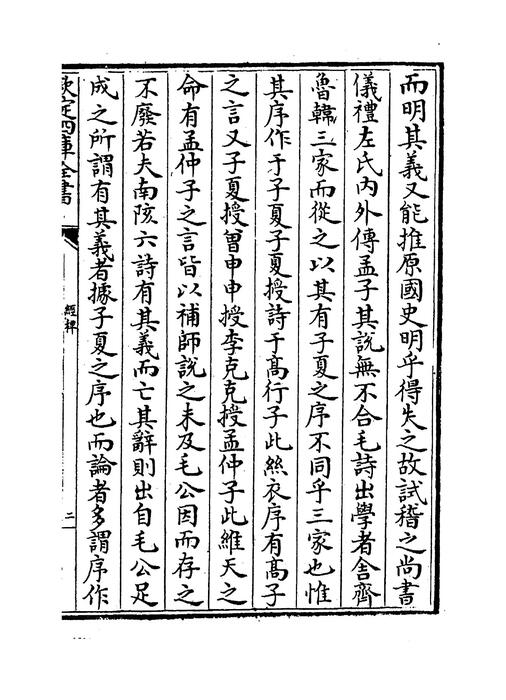 而明其義又能推原國史明乎得失之故試稽之尚書
儀禮左氏內外傳孟子其說無不合毛詩出學者舍齊
魯韓三家而從之以其有子夏之序不同乎三家也惟
其序作于子夏子夏授詩于髙行子此絲衣序有髙子
之言又子夏授曾申申授李克克授孟仲子此維天之
命有孟仲子之言皆以補師說之未及毛公因而存之
不廢若夫南陔六詩有其義而亡其辭則出自毛公足
成之所謂有其義者據子夏之序也而論者多謂序作
欽定四庫全書
經稗
二